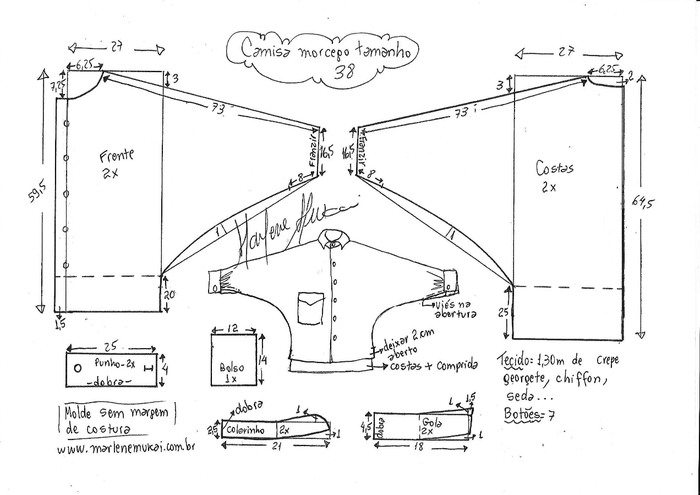 Camisa morcego tamanho
38
27
6,25
7,25
3
73
59,5
Frente
2x
Franzir
16,5
8
1
20
1,5
27
6,25
2
3
73
Franzir
16,5
8
1
Costas
2x
64,5
25
Marlene Mukai
viés na
abertura
deixar 2 cm
aberto
costas + comprida
25
Punho-2x
-dobra-
4
12
Bolso
1x
14
Tecido: 1,30m de crepe
georgete, chiffon,
seda...
Botões= 7
Molde sem margem
de costura
www.marlenemukai.com.br
dobra
1
2,5
Colarinho
2x
1
21
1
1,5
4,5
dobra
Gola
2x
1
18